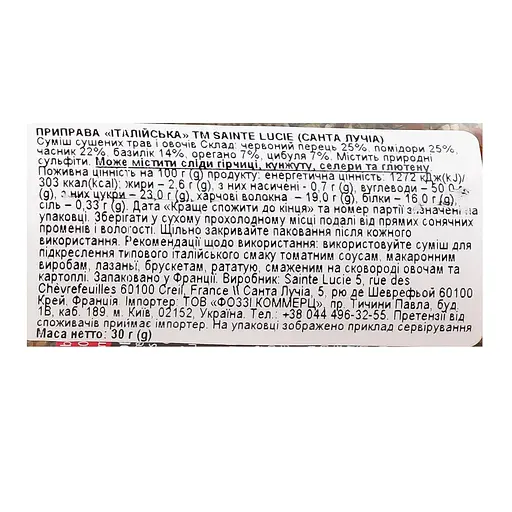 ПРИПРАВА «ІТАЛІЙСЬКА» ТМ SAINTE LUCIE (САНТА ЛУЧІА)
Суміш сушених трав і овочів Склад: червоний перець 25%, помідори 25%,
часник 22%, базилік 14%, орегано 7%, цибуля 7%. Містить природні
сульфіти. Може містити сліди гірчиці, кунжуту, селери та глютену
Поживна цінність на 100 г (g) продукту: енергетична цінність: 1272 кДж(kJ)/
303 ккал(kcal); жири – 2,6 г(g), з них насичені - 0,7 г(g), вуглеводи – 50,0
(g), з них цукри – 23,0 г(g), харчові волокна – 19,0 г(g), білки - 16,0 г(g),
сіль – 0,33 г(g). Дата «Краще спожити до кінця» та номер партії зазначені на
упаковці. Зберігати у сухому прохолодному місці подалі від прямих сонячних
променів і вологості. Щільно закривайте паковання після кожного
використання. Рекомендації щодо використання: використовуйте суміш для
підкреслення типового італійського смаку томатним соусам, макаронним
виробам, лазаньї, брускетам, рататую, смаженим на сковороді овочам та
картоплі. Запаковано у Франції. Виробник: Sainte Lucie 5, rue des
Chèvrefeuilles 60100 Creil, France \\ Санта Лучія, 5, рю де Шеврефьой 60100
Крей, Франція. Імпортер: ТОВ «ФОЗЗІ КОММЕРЦ», пр. Тичини Павла, буд.
1В, каб. 189, м. Київ, 02152, Україна. Тел.: +38 044 496-32-55. Претензії від
споживачів приймає імпортер. На упаковці зображено приклад сервірування
Маса нетто: 30 г (g)